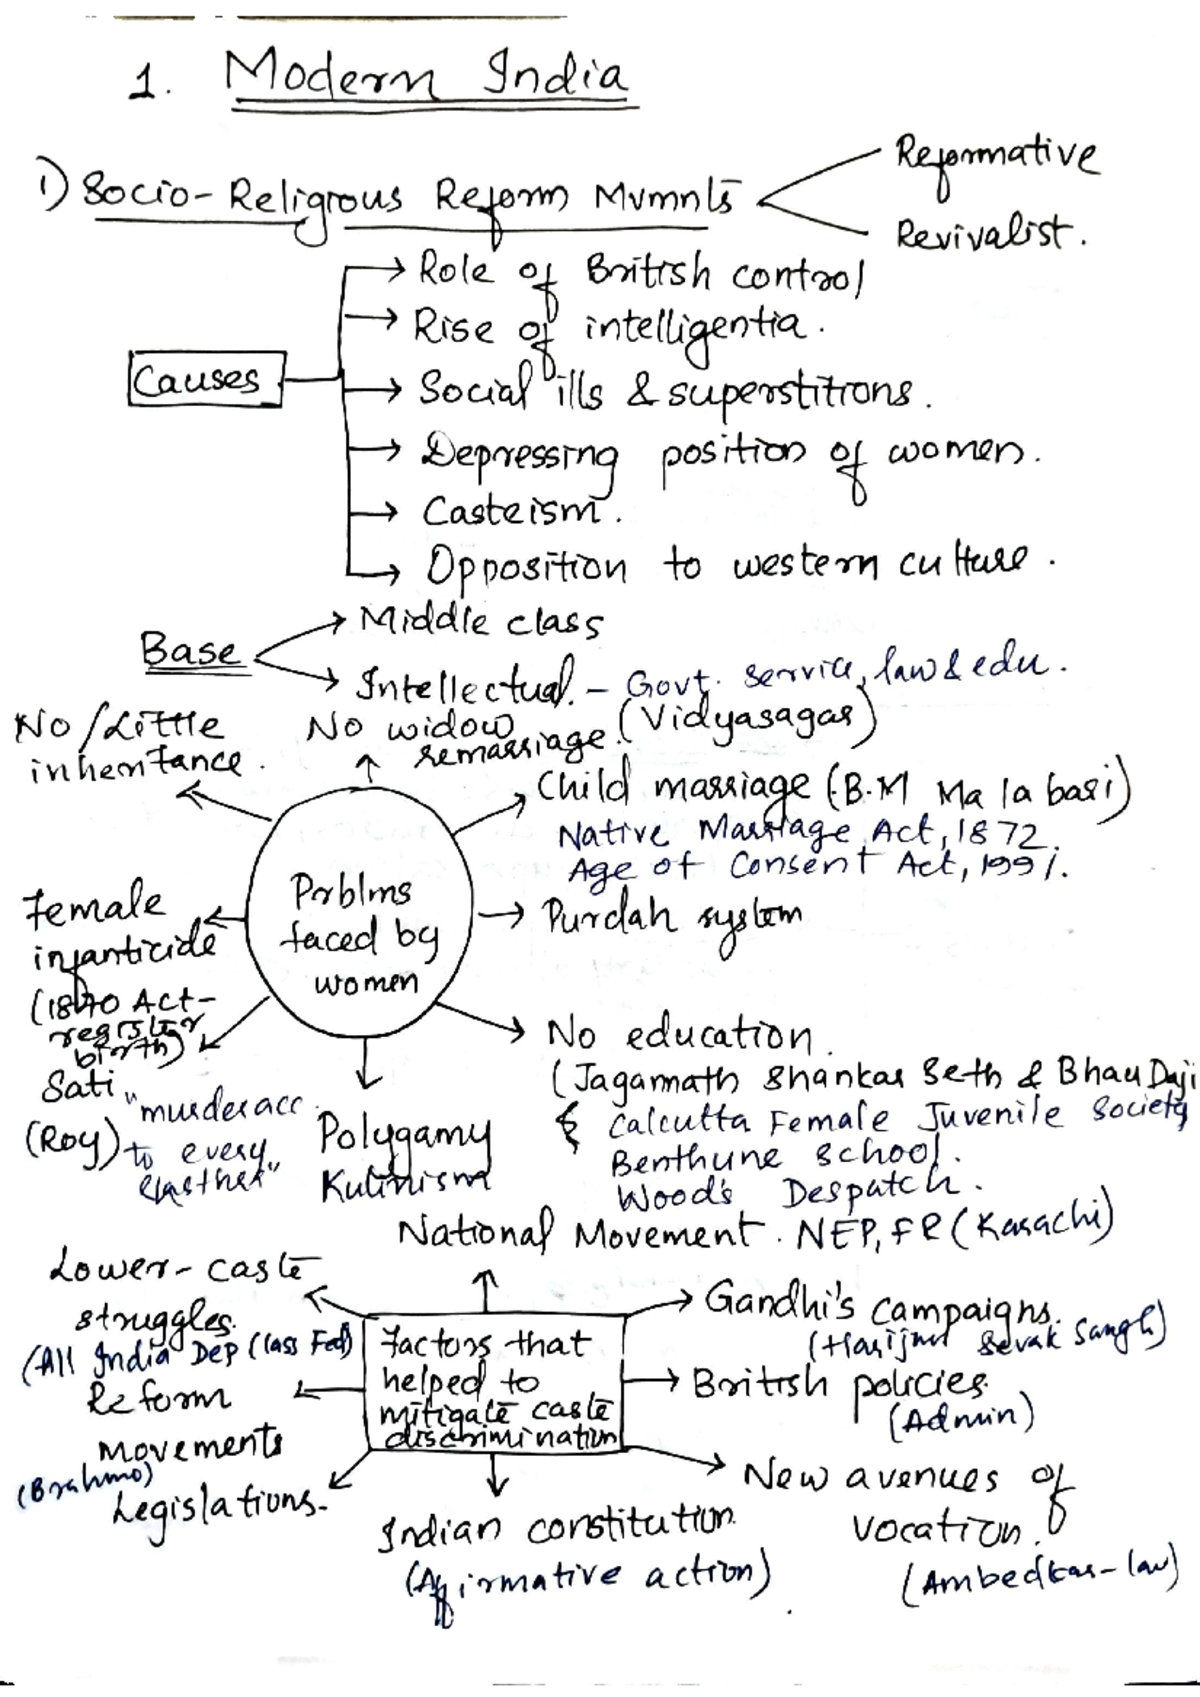 1. Modern India
1) Socio-Religious Reform Mvmnts
Reformative
Revivalist.
Causes
Role of British control
Rise of intelligentia.
Social ills & superstitions.
Depressing position of women.
Casteism.
Opposition to western culture.
Base
Middle class
Intellectual. - Govt. service, law & edu.
Prblms
faced by
women
No/Little
inheritance.
No widow
remarriage. (Vidyasagar)
Child marriage (B.M Malabari)
Native Marriage Act, 1872.
Age of Consent Act, 1991.
Purdah system
No education.
(Jagannath Shankar Seth & Bhau Daji
& Calcutta Female Juvenile Society
Benthune school.
Wood's Despatch.
Polygamy
Kulinism
Sati "murder acc.
(Roy) to every
Female
infanticide
(1870 Act-
register
birth)
Factors that
helped to
mitigate caste
discrimination
National Movement. NEP, FR (Karachi)
Gandhi's campaigns.
(Harijan Sevak Sangh)
British policies.
(Admin)
New avenues of
vocation.
(Ambedkar-law)
Indian constitution
(Affirmative action)
Legislations.
Reform
movements
(Brahmo)
Lower-caste
struggles.
(All India Dep Class Fed)